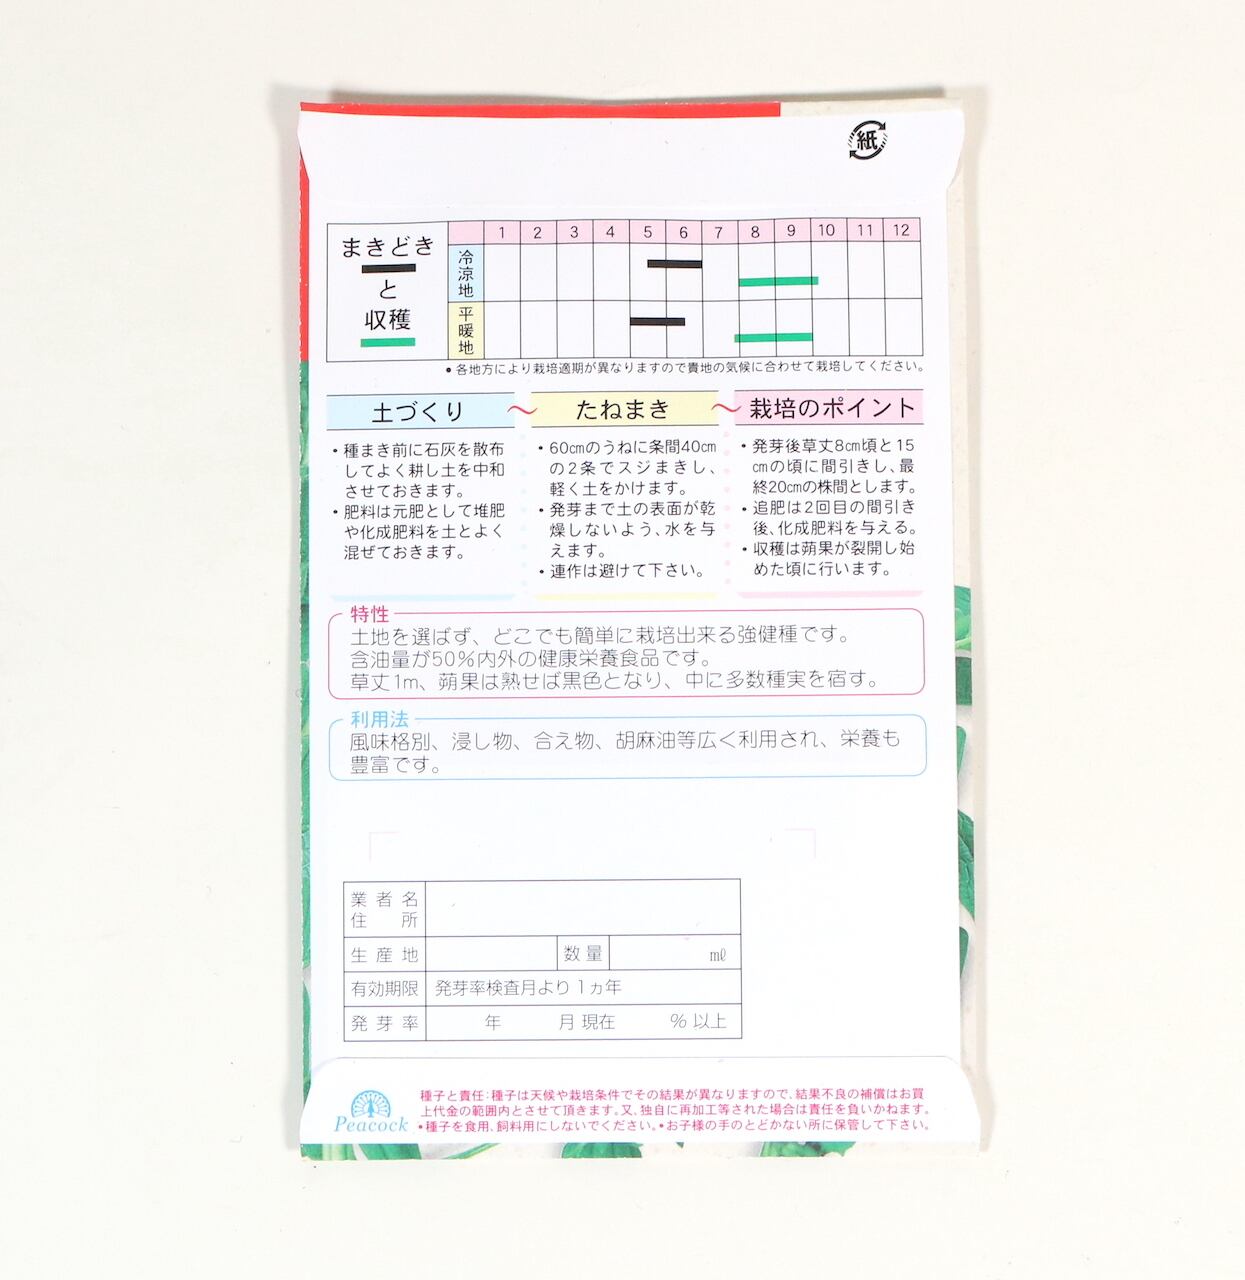 紙
まきどき
と
収穫
1 2 3 4 5 6 7 8 9 10 11 12
冷涼地
平暖地
•各地方により栽培適期が異なりますので貴地の気候に合わせて栽培してください。
土づくり
•種まき前に石灰を散布
してよく耕し土を中和
させておきます。
•肥料は元肥として堆肥
や化成肥料を土とよく
混ぜておきます。
〜
たねまき
•60㎝のうねに条間40㎝
の2条でスジまきし、
軽く土をかけます。
•発芽まで土の表面が乾
燥しないよう、水を与
えます。
•連作は避けて下さい。
〜
栽培のポイント
•発芽後草丈8㎝頃と15
㎝の頃に間引きし、最
終20㎝の株間とします。
•追肥は2回目の間引き
後、化成肥料を与える。
•収穫は蒴果が裂開し始
めた頃に行います。
特性
土地を選ばず、どこでも簡単に栽培出来る強健種です。
含油量が50％内外の健康栄養食品です。
草丈1m、蒴果は熟せば黒色となり、中に多数種実を宿す。
利用法
風味格別、浸し物、合え物、胡麻油等広く利用され、栄養も
豊富です。
業者名
住所
生産地 数量 ㎖
有効期限 発芽率検査月より1ヵ年
発芽率 年 月現在 ％以上
Peacock
種子と責任：種子は天候や栽培条件でその結果が異なりますので、結果不良の補償はお買
上代金の範囲内とさせて頂きます。又、独自に再加工等された場合は責任を負いかねます。
•種子を食用、飼料用にしないでください。•お子様の手のとどかない所に保管して下さい。